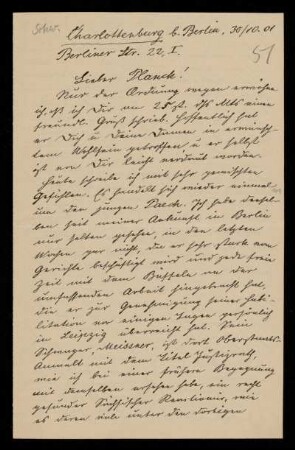 Charlottenburg b. Berlin, 30/10.01
51
Berliner Str. 22, I.
Lieber Planck!
Nur der Ordnung wegen erwähne
ich, daß ich Dir am 25st. ds. Mts einen
freundl. Gruß schrieb. Hoffentlich hat
er Dich u. Deine Damen in erwünsch-
tem Wohlsein getroffen u. er selbst
ist von Dir leicht verdaut worden.
Heute schreibe ich mit sehr gemischten
Gefühlen. Es handelt sich wieder einmal
um den jungen Ich habe densel-
ben seit meiner Ankunft in Berlin
nur selten gesehen, in den letzten
Wochen gar nicht, da er sehr stark vom
Gerichte beschäftigt wird und jede freie
Zeit mit dem an der
umfassenden Arbeit hingebracht hat,
die er zur Genehmigung seiner Habi-
litation vor einigen Tagen persönlich
in Leipzig überreicht hat. Sein
Schwager, Meissner, ist dort Oberstaats-
Anwalt mit dem Titel Justizrath,
wie ich bei einer frühern Begegnung
mit demselben ersehen habe, ein recht
gesunder Sächsischer wie
es deren viele unter den dortigen